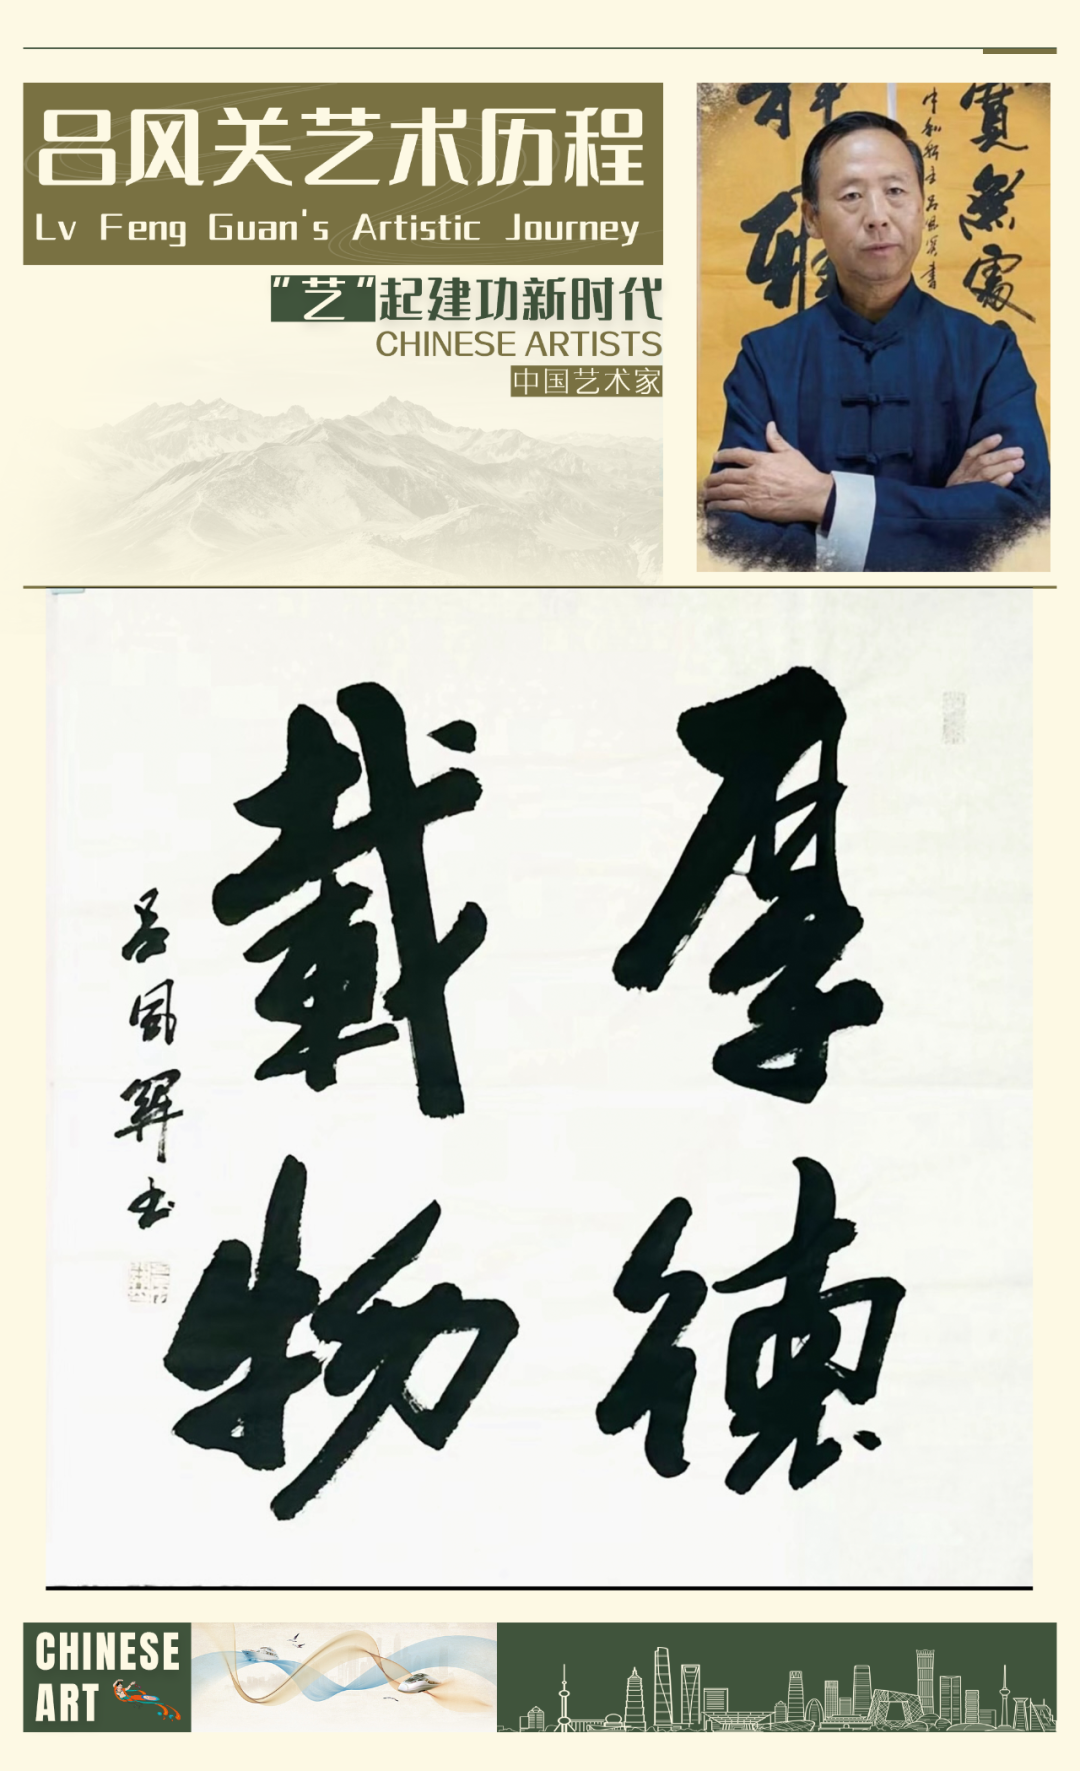 吕风关艺术历程
Lv Feng Guan's Artistic Journey
“艺”起建功新时代
CHINESE ARTISTS
中国艺术家
寶
無
雅
中和斋主吕風關書
厚德
載物
吕風關书
CHINESE
ART